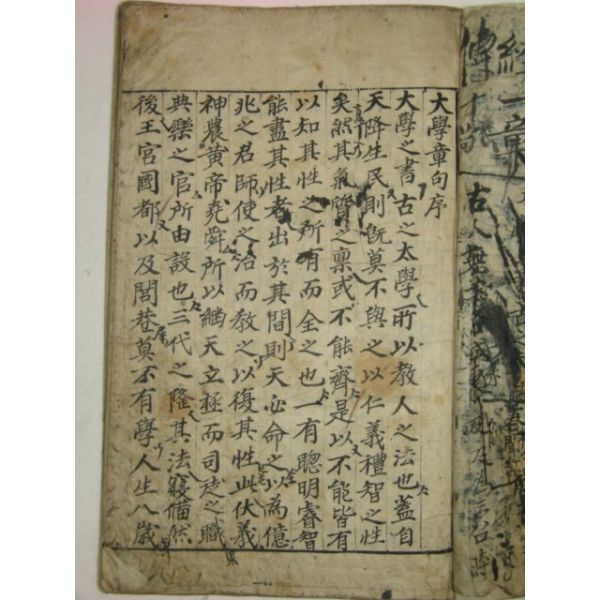 經一章
傳十
古人
大學章句序
大學之書古之太學所以教人之法也蓋自
天降生民則旣莫不與之以仁義禮智之性
矣然其氣質之稟或不能齊是以不能皆有
以知其性之所有而全之也一有聰明睿智
能盡其性者出於其間則天必命之以為億
兆之君師使之治而教之以復其性此伏羲
神農黄帝堯舜所以繼天立極而司徒之職
典樂之官所由設也三代之隆其法寢備然
後王宮國都以及閭巷莫不有學人生八歲